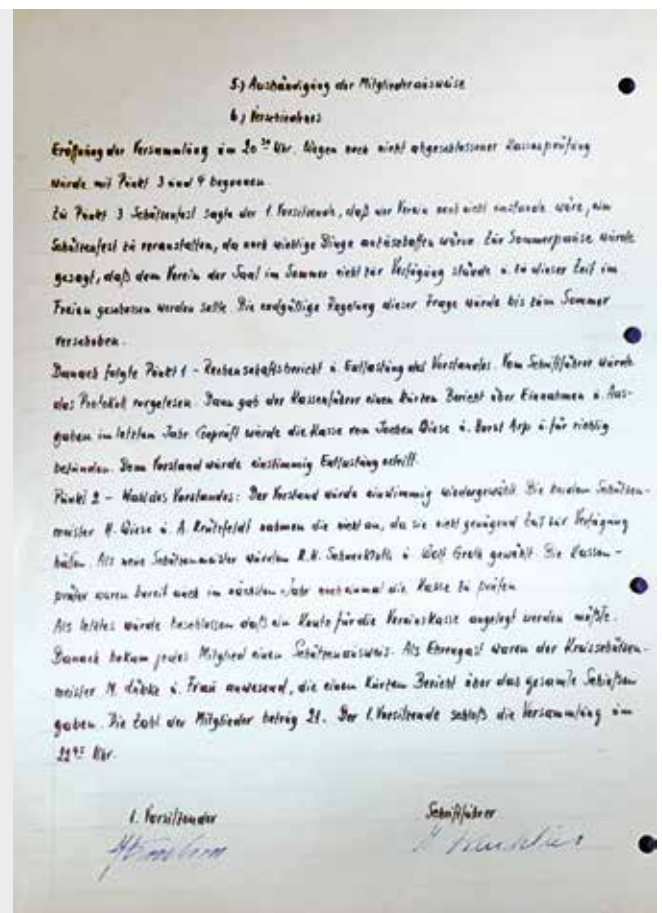 5.) Aushändigung der Mitgliederausweise
6.) Verschiedenes
Eröffnung der Versammlung um 20³⁰ Uhr. Wegen noch nicht abgeschlossener Kassenprüfung
wurde mit Punkt 3 und 4 begonnen.
Zu Punkt 3 Schützenfest sagte der 1. Vorsitzende, daß der Verein noch nicht imstande wäre, ein
Schützenfest zu veranstalten, da noch wichtige Dinge anzuschaffen wären. Zur Sommerpause wurde
gesagt, daß dem Verein der Saal im Sommer nicht zur Verfügung stünde u. zu dieser Zeit im
Freien geschossen werden sollte. Die endgültige Regelung dieser Frage wurde bis zum Sommer
verschoben.
Danach folgte Punkt 1 - Rechenschaftsbericht u. Entlastung des Vorstandes. Vom Schriftführer wurde
das Protokoll vorgelesen. Dann gab der Kassenführer einen kurzen Bericht über Einnahmen u. Aus-
gaben im letzten Jahr. Geprüft wurde die Kasse von Jochen Giese u. Horst Arp u. für richtig
befunden. Dem Vorstand wurde einstimmig Entlastung erteilt.
Punkt 2 - Wahl des Vorstandes: Der Vorstand wurde einstimmig wiedergewählt. Die beiden Schützen-
meister H. Giese u. A. Krützfeldt nahmen die nicht an, da sie nicht genügend Zeit zur Verfügung
hätten. Als neue Schützenmeister wurden R.H. u. Wolf Groth gewählt. Die Kassen-
prüfer waren bereit auch im nächsten Jahr noch einmal die Kasse zu prüfen.
Als letztes wurde beschlossen daß ein Konto für die Vereinskasse angelegt werden müßte.
Danach bekam jedes Mitglied einen Schützenausweis. Als Ehrengast waren der Kreisschützen-
meister M. Lübke u. Frau anwesend, die einen kurzen Bericht über das gesamte Schießen
gaben. Die Zahl der Mitglieder betrug 21. Der 1. Vorsitzende schloß die Versammlung um
22⁴⁵ Uhr.
1. Vorsitzender
Schriftführer